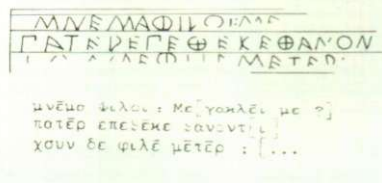 ΜΝΕΜΑΦΙΛΟΙΜΕ
ΓΑΤΕΡΕΓΕΘΕΚΕΘΑΝΟΝ
ΜΕΤΕΡ:
μνε̄μα φιλοι : Με[γακλεῖ με ?]
πατε̄ρ ἐπέθε̄κε θανόντ[ι]
χσυν δε φιλε̄ με̄τε̄ρ : [...